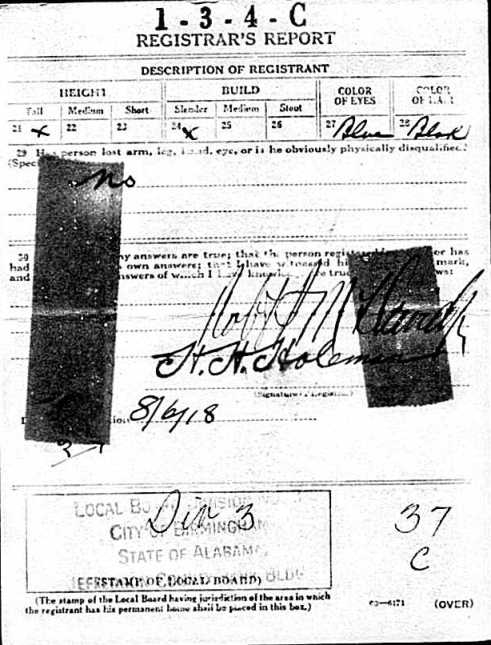 1-3-4-C
REGISTRAR'S REPORT
DESCRIPTION OF REGISTRANT
HEIGHT BUILD COLOR OF EYES COLOR OF HAIR
Tall Medium Short Slender Medium Stout
21 x 22 23 24 x 25 26 27 Blue 28 Black
29 Has person lost arm, leg, hand, eye, or is he obviously physically disqualified?
(Spec
No
30 my answers are true; that the person regist or has
had own answers; that I have witnessed hi mark,
and answers of which I have know are true
H. H. Holeman
(Signature of Registrar)
8/6/18
37
LOCAL BOARD DIVISION NO. Div 3
CITY OF BIRMINGHAM
STATE OF ALABAMA
JEFFERSON BANK BLDG
(STAMP OF LOCAL BOARD)
37
C
(The stamp of the Local Board having jurisdiction of the area in which
the registrant has his permanent home shall be placed in this box.)
03—6171 (OVER)